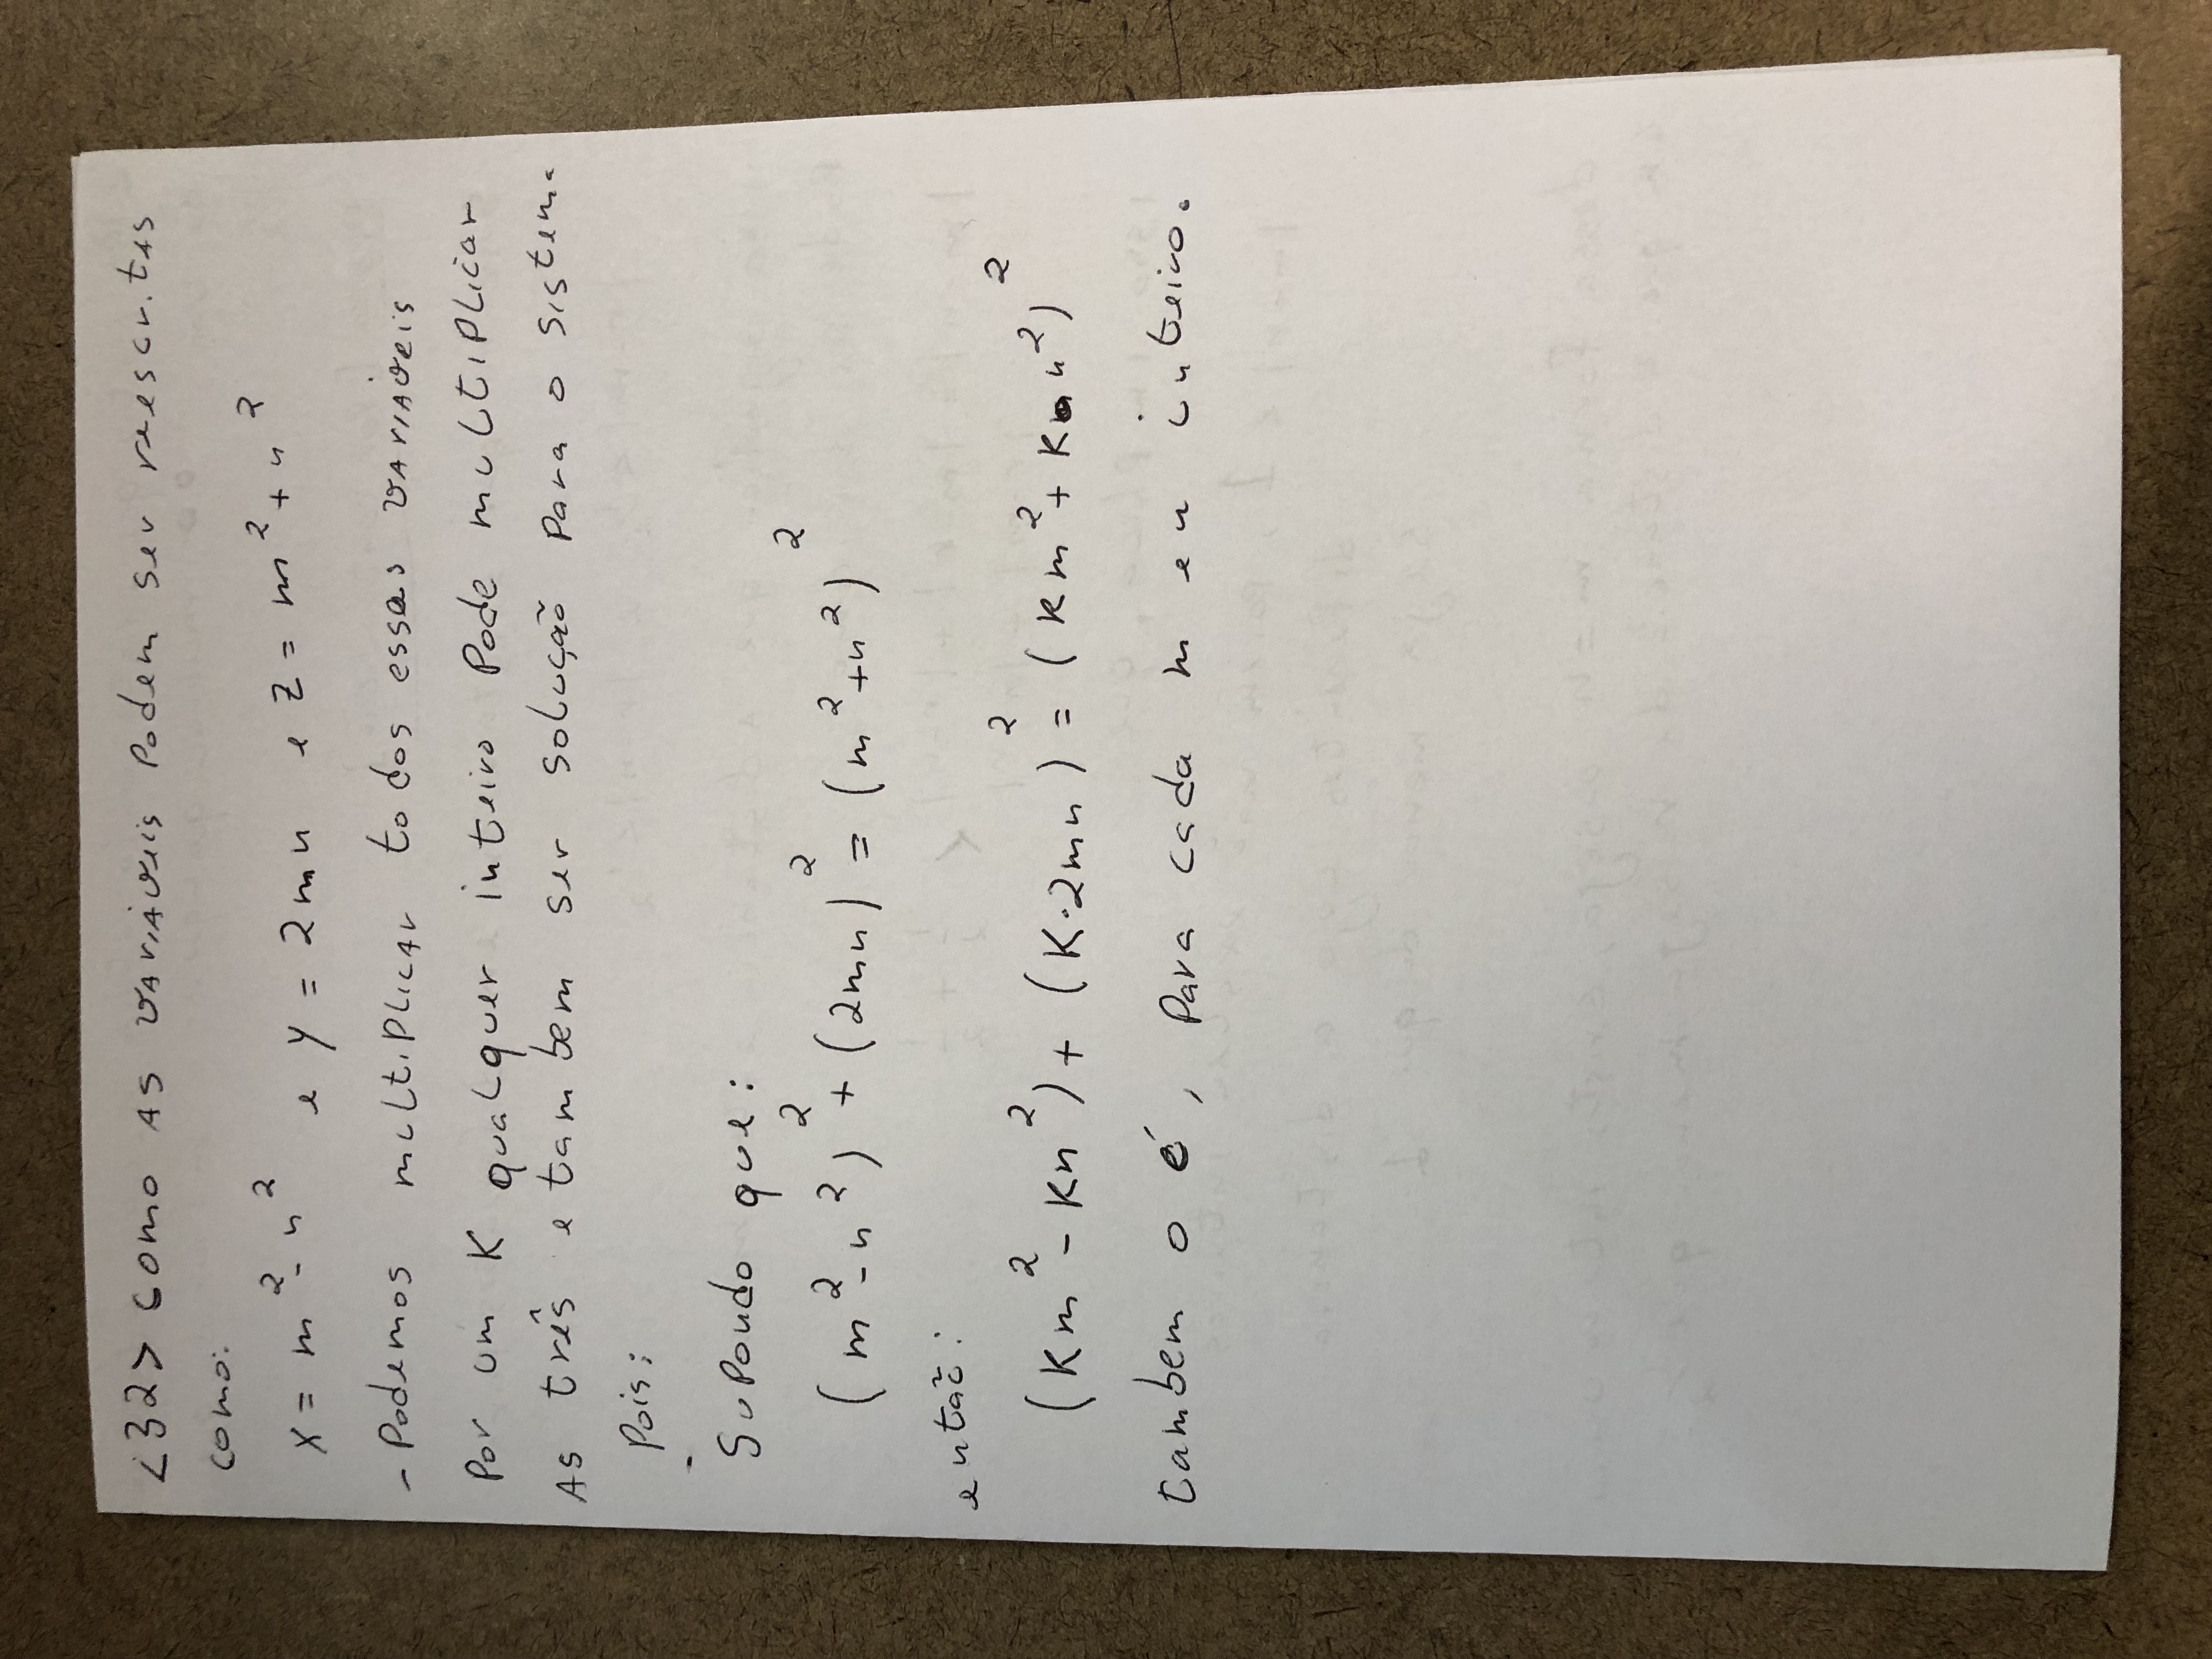 <32> Como as variáveis podem ser reescritas
como:
x = m² - n² e y = 2mn e z = m² + n²
- Podemos multiplicar todos essas variáveis
por um K qualquer inteiro pode multiplicar
as três e tambem ser solução para o sistema
pois:
-
Supondo que:
(m² - n²)² + (2mn)² = (m² + n²)²
então:
(Km² - Kn²) + (K·2mn)² = (Km² + K n²)²
tambem o é, para cada m e n inteiro.